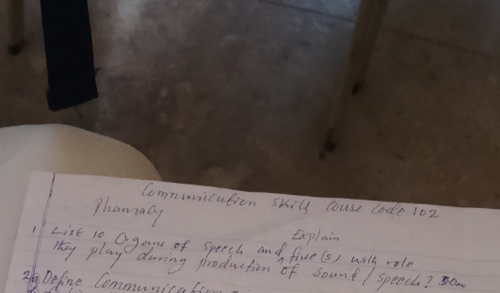 Communication Skill Course Code 102
Pharmacy
1. List 10 Organs of Speech and Explain five (5) with role
they play during production of sound / speech? 30m
2a. Define Communication